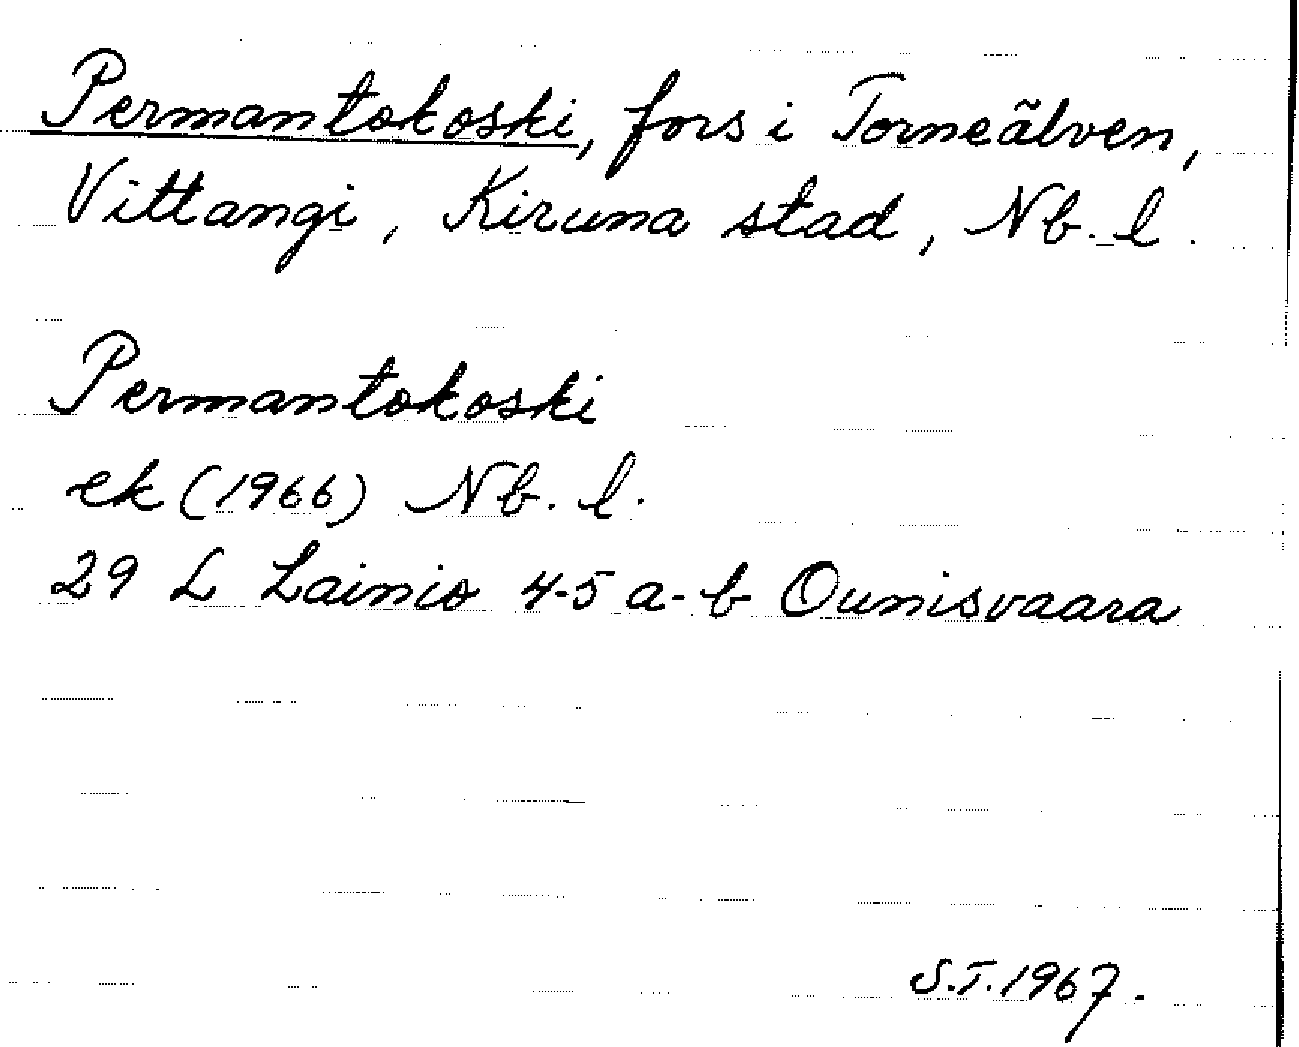 Permantokoski, fors i Torneälven,
Vittangi, Kiruna stad, Nb. l.
Permantokoski
ek (1966) Nb. l.
29 L Lainio 4-5 a-b Ounisvaara
S.T. 1967.